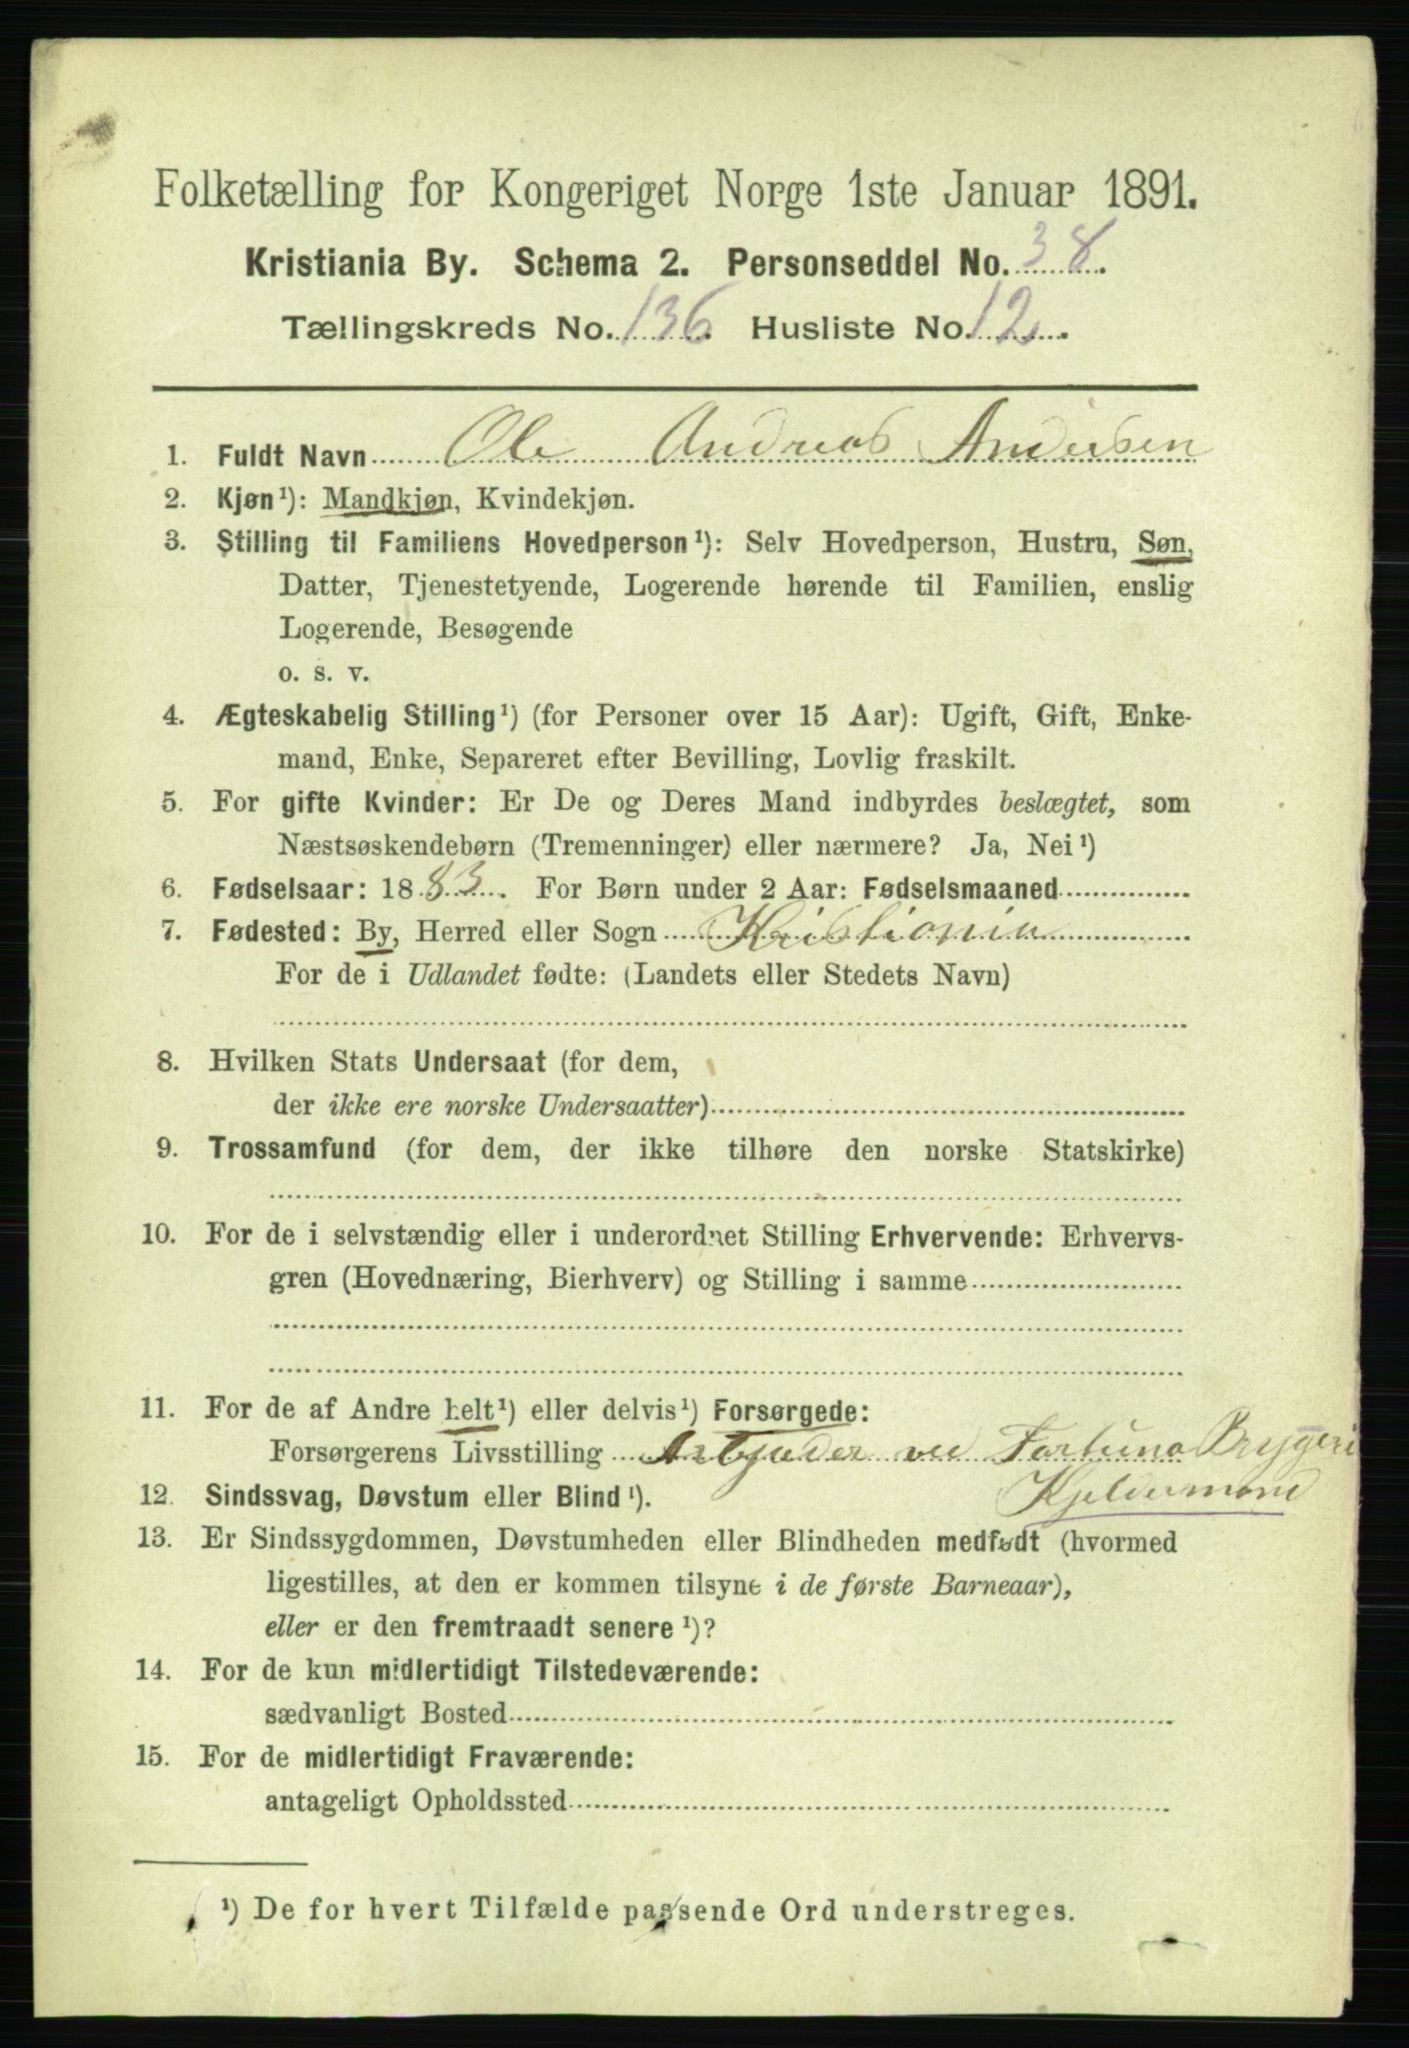 Folketælling for Kongeriget Norge 1ste Januar 1891.
Kristiania By. Schema 2. Personseddel No. 38.
Tællingskreds No. 136. Husliste No. 12.
1. Fuldt Navn Ole Andreas Andersen
2. Kjøn¹): Mandkjøn, Kvindekjøn.
3. Stilling til Familiens Hovedperson¹): Selv Hovedperson, Hustru, Søn,
Datter, Tjenestetyende, Logerende hørende til Familien, enslig
Logerende, Besøgende
o. s. v.
4. Ægteskabelig Stilling¹) (for Personer over 15 Aar): Ugift, Gift, Enke-
mand, Enke, Separeret efter Bevilling, Lovlig fraskilt.
5. For gifte Kvinder: Er De og Deres Mand indbyrdes beslægtet, som
Næstsøskendebørn (Tremenninger) eller nærmere? Ja, Nei¹)
6. Fødselsaar: 1883. For Børn under 2 Aar: Fødselsmaaned
7. Fødested: By, Herred eller Sogn Kristiania
For de i Udlandet fødte: (Landets eller Stedets Navn)
8. Hvilken Stats Undersaat (for dem,
der ikke ere norske Undersaatter)
9. Trossamfund (for dem, der ikke tilhøre den norske Statskirke)
10. For de i selvstændig eller i underordnet Stilling Erhvervende: Erhvervs-
gren (Hovednæring, Bierhverv) og Stilling i samme
11. For de af Andre helt¹) eller delvis¹) Forsørgede:
Forsørgerens Livsstilling Arbjæder ve Fortuna Bryggeri
Kjeldermand
12. Sindssvag, Døvstum eller Blind¹).
13. Er Sindssygdommen, Døvstumheden eller Blindheden medfødt (hvormed
ligestilles, at den er kommen tilsyne i de første Barneaar),
eller er den fremtraadt senere¹)?
14. For de kun midlertidigt Tilstedeværende:
sædvanligt Bosted
15. For de midlertidigt Fraværende:
antageligt Opholdssted
¹) De for hvert Tilfælde passende Ord understreges.